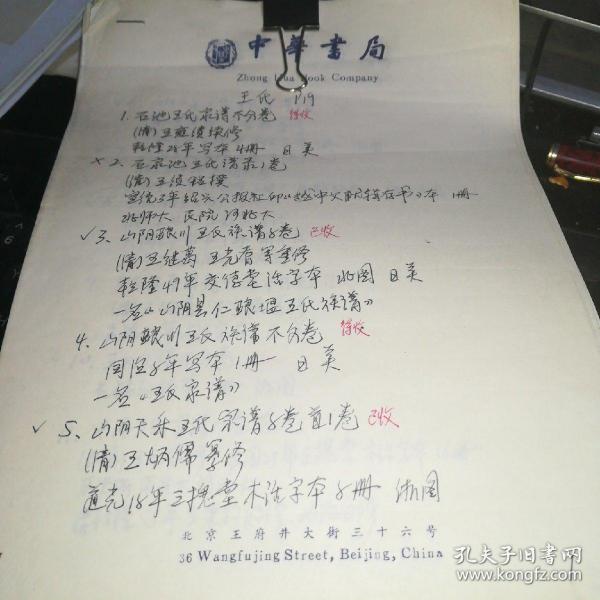 中華書局
Zhong Hua Book Company
王氏 P19
1. 石池王氏家谱不分卷 待收
(清)王 续修
乾隆28年写本 4册 日 美
×2. 石泉池王氏谱录1卷
(清)王
宣统3年绍兴公报社印《越中文献辑存书》本 1册
北师大 民院 河北大
✓3. 山阴 川王氏族谱 卷 已收
(清)王继 王 等重修
乾隆49年 德堂活字本 北图 日 美
一名《山阴县仁 堰王氏族谱》
4. 山阴 川王氏族谱不分卷 待收
同治 年写本 1册 日 美
一名《王氏家谱》
✓5. 山阴天乐王氏宗谱 卷首1卷 已收
(清)王炳儒纂修
道光18年三槐堂木活字本 册 浙图
北京王府井大街三十六号
36 Wangfujing Street, Beijing, China
孔夫子旧书网
www.kongfz.com